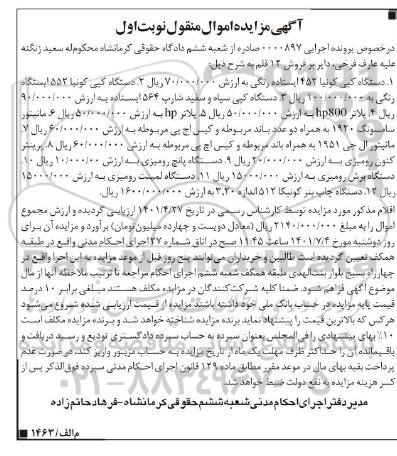 آگهی مزایده اموال منقول نوبت اول
درخصوص پرونده اجرایی ۰۰۰۰۸۹۷ صادره از شعبه ششم دادگاه حقوقی کرمانشاه محکوم‌له سعید زنگنه
علیه عارف فرخی، دایر بر فروش ۱۲ قلم به شرح ذیل:
۱. دستگاه کپی کونیا ۴۵۲ ایستاده رنگی به ارزش ۷۰/۰۰۰/۰۰۰ ریال ۲. دستگاه کپی کونیا ۵۵۲ ایستاده
رنگی به ۱۰۰/۰۰۰/۰۰۰ ریال ۳. دستگاه کپی سیاه و سفید شارپ ۵۶۴ ایستاده به ارزش ۹۰/۰۰۰/۰۰۰
ریال ۴. پلاتر hp800 به ارزش ۵۰/۰۰۰/۰۰۰ ریال ۵. پلاتر hp به ارزش ۵۰/۰۰۰/۰۰۰ ریال ۶. مانیتور
سامسونگ ۱۹۲۰ به همراه دو عدد باند مربوطه و کیس اچ پی مربوطه به ارزش ۶۰/۰۰۰/۰۰۰ ریال ۷.
مانیتور ال جی ۱۹۵۱ به همراه باند مربوطه و کیس اچ پی مربوطه به ارزش ۶۰/۰۰۰/۰۰۰ ریال ۸. پرینتر
کنون رومیزی به ارزش ۲۰/۰۰۰/۰۰۰ ریال ۹. دستگاه پانچ رومیزی به ارزش ۱۰/۰۰۰/۰۰۰ ریال ۱۰.
دستگاه برش رومیزی به ارزش ۱۵۰۰۰/۰۰۰ ریال ۱۱. دستگاه لمینت رومیزی به ارزش ۱۵۰۰۰/۰۰۰
ریال ۱۲. دستگاه چاپ بنر کونیکا ۵۱۲ اندازه ۳,۲۰ به ارزش ۱۶۰۰/۰۰۰/۰۰۰ ریال.
اقلام مذکور مورد مزایده توسط کارشناس رسمی در تاریخ ۱۴۰۱/۴/۲۷ ارزیابی گردیده و ارزش مجموع
اموال را به مبلغ ۲۱۴۰/۰۰۰/۰۰۰ ریال (معادل دویست و چهارده میلیون تومان) برآورد و مزایده آن برای
روز دوشنبه مورخ ۱۴۰۱/۷/۴ ساعت ۱۱:۴۵ صبح در اتاق شماره ۲۷ اجرای احکام مدنی واقع در طبقه
همکف تعیین گردیده است طالبین و خریداران می‌توانند پنج روز قبل از موعد مزایده به این اجرا واقع در
چهارراه بسیج بلوار بنت‌الهدی طبقه همکف شعبه ششم اجرای احکام مراجعه تا ترتیب ملاحظه آنها از مال
موضوع آگهی فراهم شود. ضمنا کلیه شرکت‌کنندگان در مزایده مکلف هستند مبلغی برابر ۱۰ درصد
قیمت پایه مزایده در حساب بانک ملی خود داشته باشند مزایده از قیمت ارزیابی شده شروع می‌شود
هر کس که بالاترین قیمت را پیشنهاد نماید برنده مزایده شناخته خواهد شد و برنده مزایده مکلف است
۱۰٪ بهای پیشنهادی را فی‌المجلس بعنوان سپرده به حساب سپرده دادگستری تودیع و رسید دریافت و
باقیمانده آن را حداکثر ظرف مهلت یک ماه از تاریخ مزایده به حساب مزبور واریز کند، در صورت عدم
پرداخت بقیه بهای مال در موعد مقرر مطابق ماده ۱۲۹ قانون اجرای احکام مدنی سپرده فوق‌الذکر پس از
کسر هزینه مزایده به نفع دولت ضبط خواهد شد.
مدیر دفتر اجرای احکام مدنی شعبه ششم حقوقی کرمانشاه - فرهاد حاتم‌زاده
م‌الف/۱۴۶۳